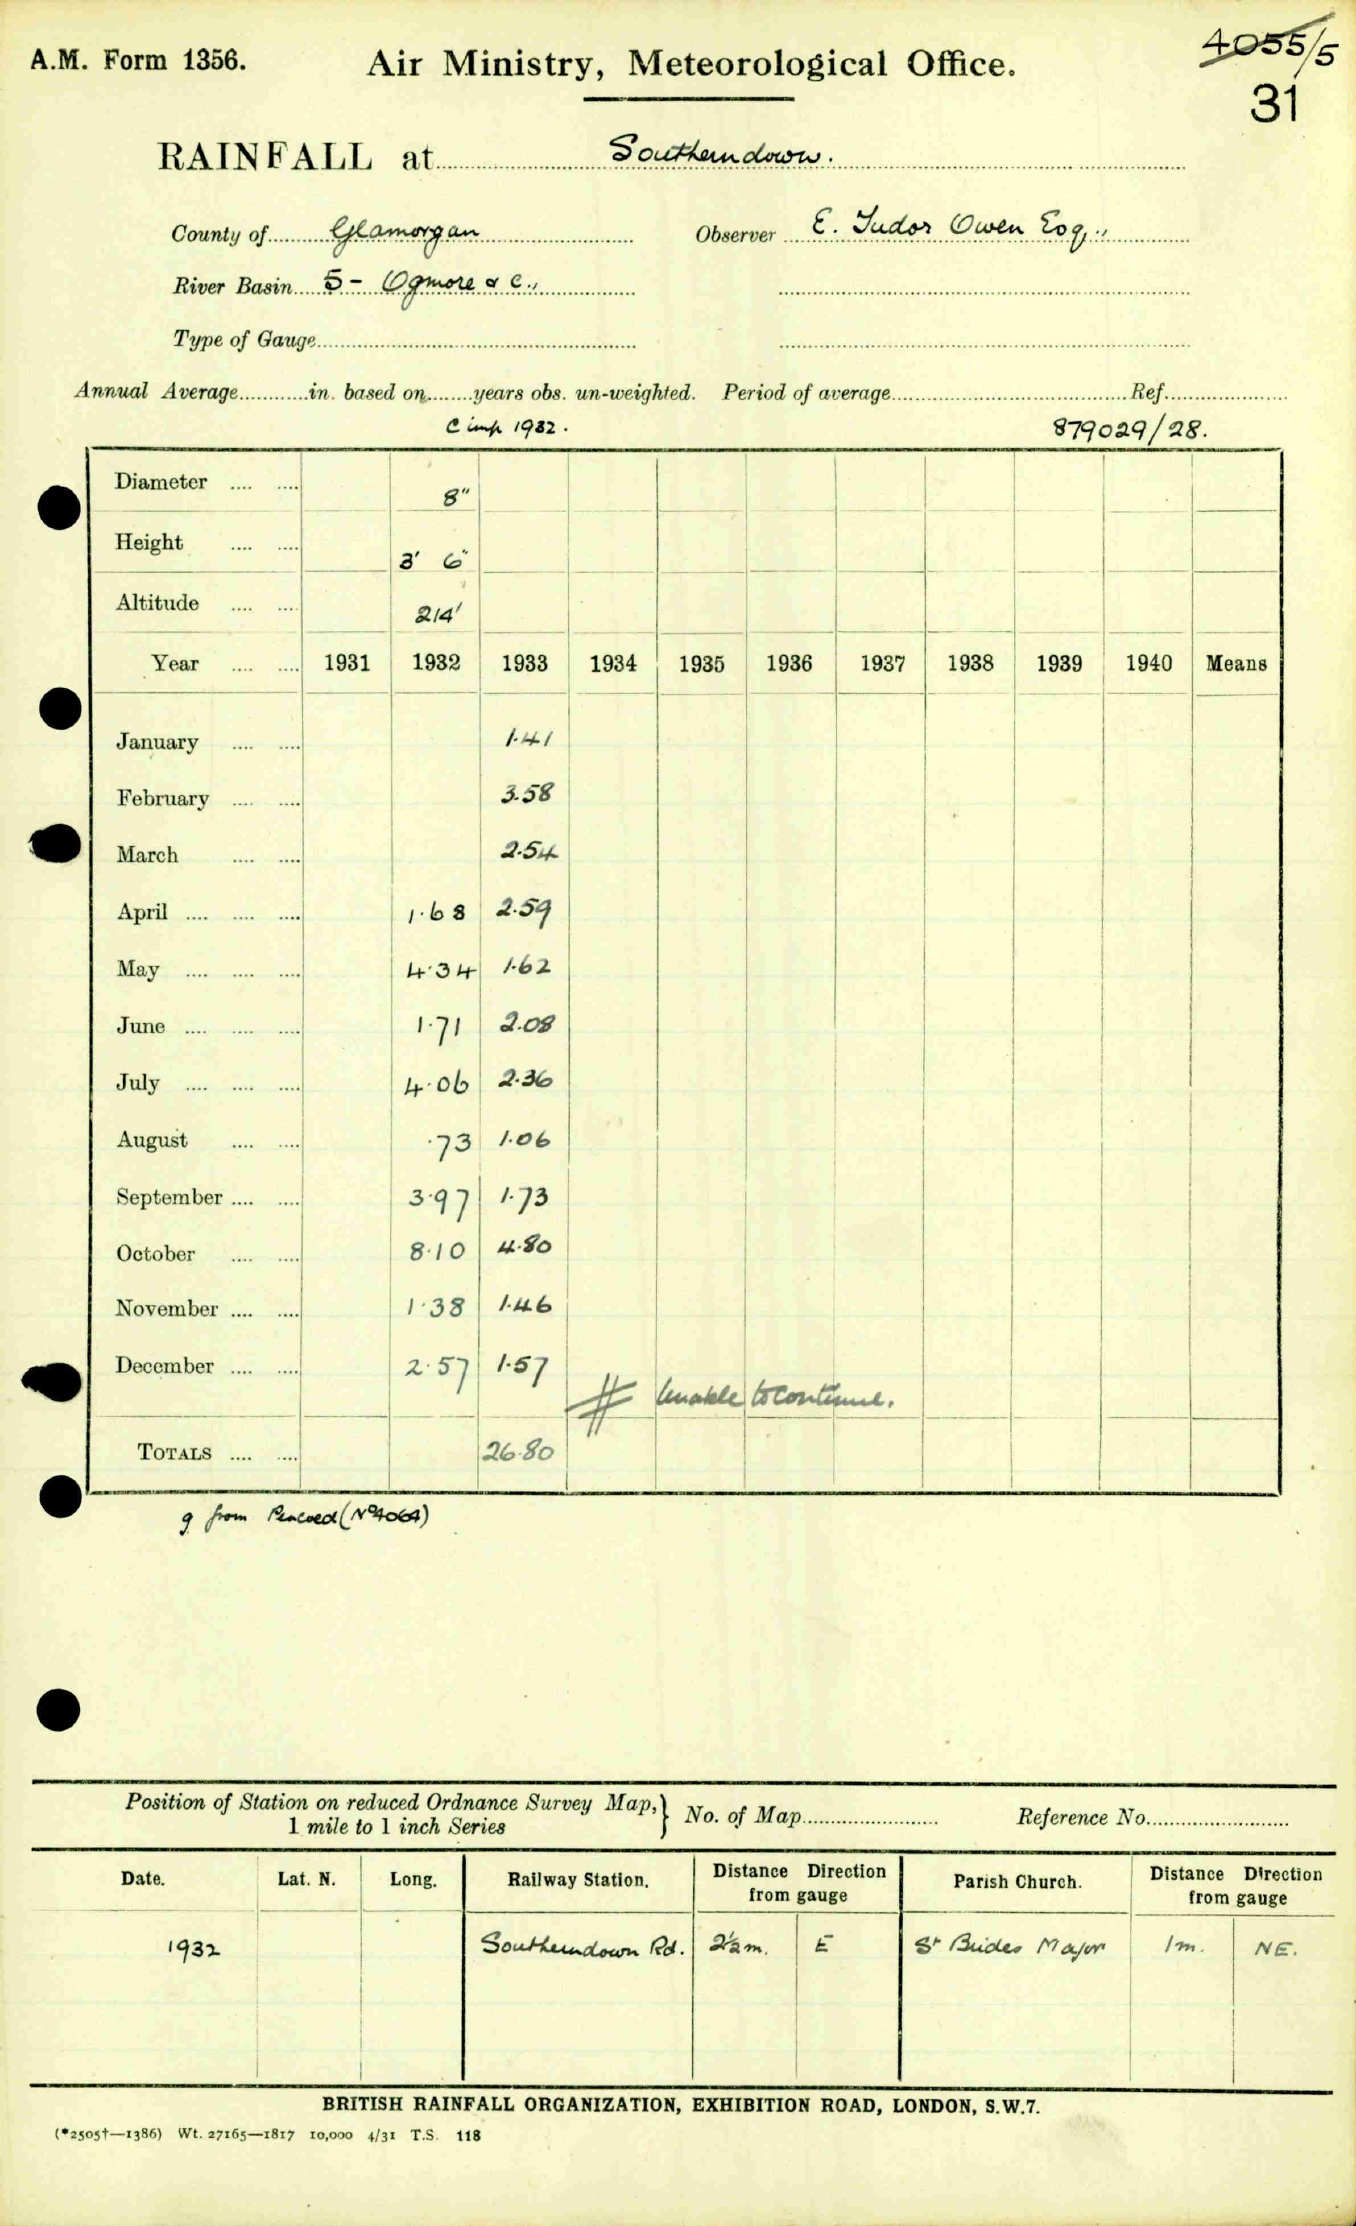 A.M. Form 1356. Air Ministry, Meteorological Office. 4055/5
31
RAINFALL at Southerndown.
County of Glamorgan Observer E. Tudor Owen Esq.,
River Basin 5 - Ogmore & c.,
Type of Gauge
Annual Average in. based on years obs. un-weighted. Period of average Ref.
C imp 1932. 879029/28.
Diameter 8"
Height 3' 6"
Altitude 214'
Year 1931 1932 1933 1934 1935 1936 1937 1938 1939 1940 Means
January 1.41
February 3.58
March 2.54
April 1.68 2.59
May 4.34 1.62
June 1.71 2.08
July 4.06 2.36
August .73 1.06
September 3.97 1.73
October 8.10 4.80
November 1.38 1.46
December 2.57 1.57
# Unable to continue.
TOTALS 26.80
g from Pencoed (No 4064)
Position of Station on reduced Ordnance Survey Map, } No. of Map Reference No.
1 mile to 1 inch Series
Date. Lat. N. Long. Railway Station. Distance Direction from gauge Parish Church. Distance Direction from gauge
1932 Southerndown Rd. 2½m. E St Brides Major 1m. NE.
BRITISH RAINFALL ORGANIZATION, EXHIBITION ROAD, LONDON, S.W.7.
(*2505†—1386) Wt. 27165—1817 10,000 4/31 T.S. 118